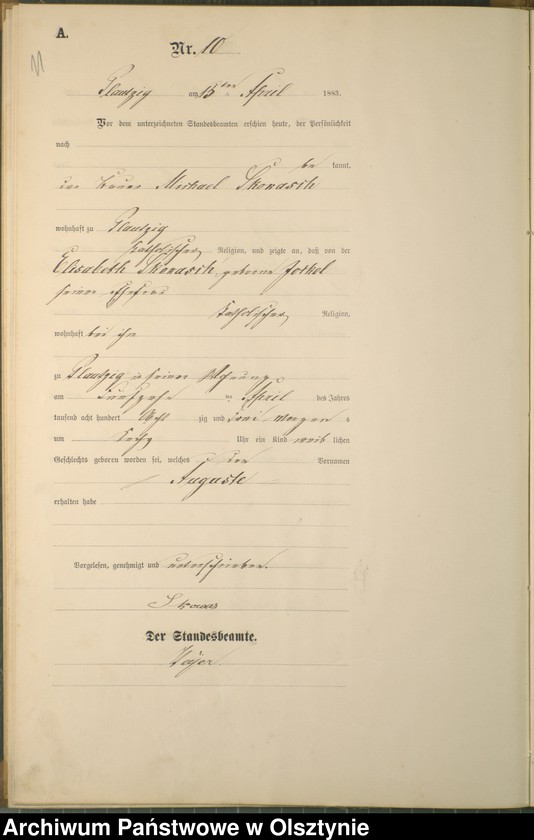 A.
11
Nr. 10
Plautzig am 15ten April 1883.
Vor dem unterzeichneten Standesbeamten erschien heute, der Persönlichkeit
nach
be kannt,
der Michael Skonasik
wohnhaft zu Plautzig
katholischer Religion, und zeigte an, daß von der
Elisabeth Skonasik geborene Jockel
seiner Ehefrau
katholischer Religion,
wohnhaft bei ihm
zu Plautzig in seiner Wohnung
am fünfzehn ten April des Jahres
tausend acht hundert acht zig und drei Morgens
um sechs Uhr ein Kind weib lichen
Geschlechts geboren worden sei, welches den Vornamen
Auguste
erhalten habe
Vorgelesen, genehmigt und unterschrieben.
Der Standesbeamte.
Archiwum Państwowe w Olsztynie